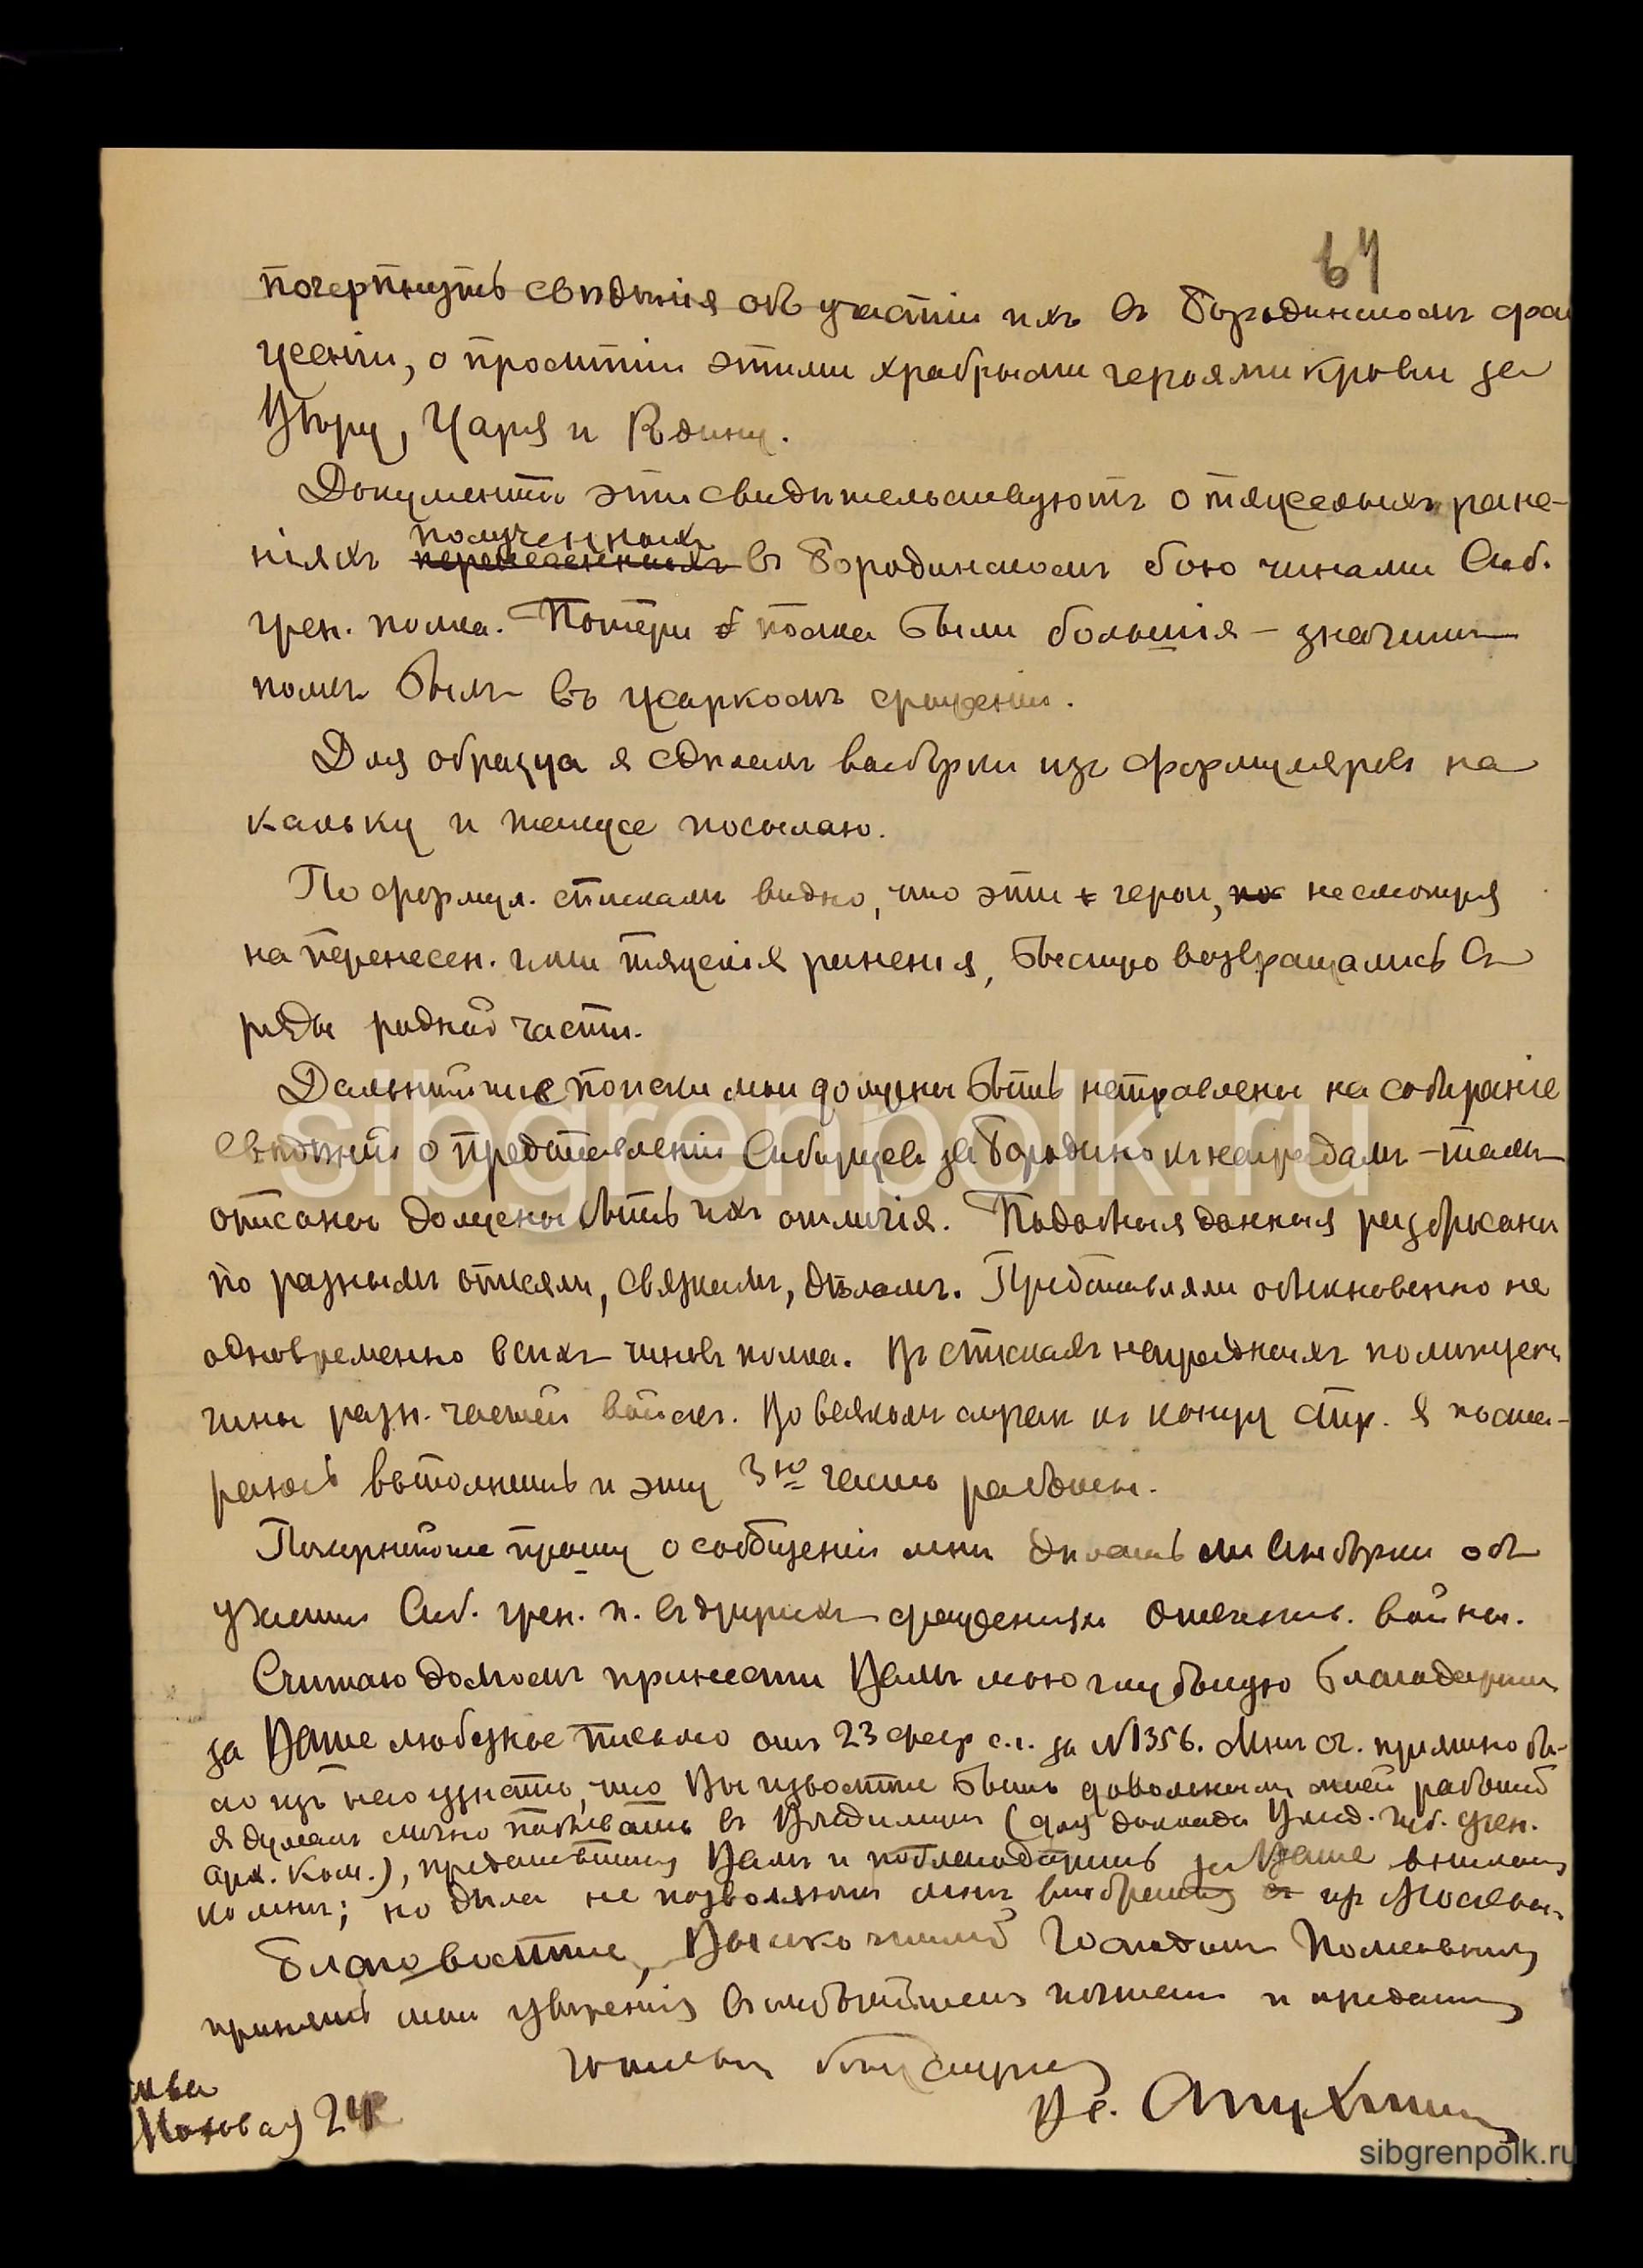 64
почерпнуть свѣдѣнія объ участіи ихъ въ Бородинскомъ сра
женіи, о пролитіи этими храбрыми героями крови за
Вѣру, Царя и Родину.
Документы эти свидѣтельствуютъ о тяжелыхъ ране-
полученныхъ
ніяхъ перенесенныхъ въ Бородинскомъ бою чинами Сиб.
грен. полка. Потери полка были большія – значитъ
полкъ былъ въ жаркомъ сраженіи.
Для образца я сдѣлалъ выборки изъ формуляровъ на
кальку и тоже посылаю.
По формул. спискамъ видно, что эти герои, не смотря
на перенесен. ими тяжкія раненія, быстро возвращались въ
ряды родной части.
Дальнѣйшіе поиски мои должны быть направлены на собираніе
свѣдѣній о представленіи Сибирцевъ за Бородино къ наградамъ – тамъ
описаны должны быть ихъ отличія. Подобныя данныя разбросаны
по разнымъ описямъ, связкамъ, дѣламъ. Представляли обыкновенно не
одновременно всѣхъ чиновъ полка. Въ спискахъ наградныхъ помѣщены
чины разн. частей войскъ. Во всякомъ случаѣ къ концу апр. я поста-
раюсь выполнить и эту 3ю часть работы.
Покорнѣйше прошу о сообщеніи мнѣ дѣлать ли выборки объ
участіи Сиб. грен. п. въ другихъ сраженіяхъ Отечеств. войны.
Считаю долгомъ принести Вамъ мою глубокую благодарность
за Ваше любезное письмо отъ 23 февр с.г. за №1356. Мнѣ оч. пріятно бы-
ло изъ него узнать, что Вы изволите быть довольнымъ моей работой
я думалъ лично побывать въ Владимирѣ (для доклада Влад. губ. учен.
арх. Ком.), представиться Вамъ и поблагодарить за Ваше вниманіе
ко мнѣ; но дѣла не позволяютъ мнѣ выбраться изъ Москвы.
Благоволите, Высокочтимый Господинъ Полковникъ
принять мои увѣренія въ глубочайшемъ почтеніи и преданности
готовый къ услугамъ
Вс. Апухтинъ
Моховая 24
sibgrenpolk.ru
sibgrenpolk.ru